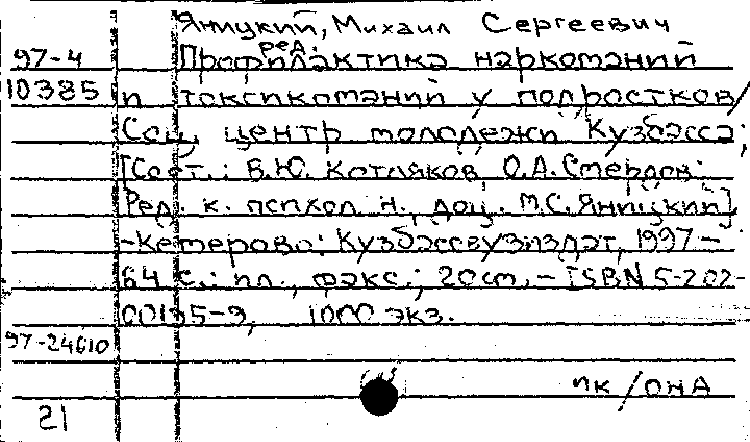 Яницкий, Михаил Сергеевич
ред.
97-4 Профилактика наркоманий
10385 и токсикоманий у подростков/
Соц. центр молодежи Кузбасса;
[Сост.: В.Ю. Котляков, О.А. Смердов;
Ред. к. психол. н., доц. М.С. Яницкий].
-Кемерово: Кузбассвузиздат, 1997-
64 с.: ил., факс.; 20 см.- ISBN 5-202-
00135-9, 1000 экз.
97-24610
пк/она
21